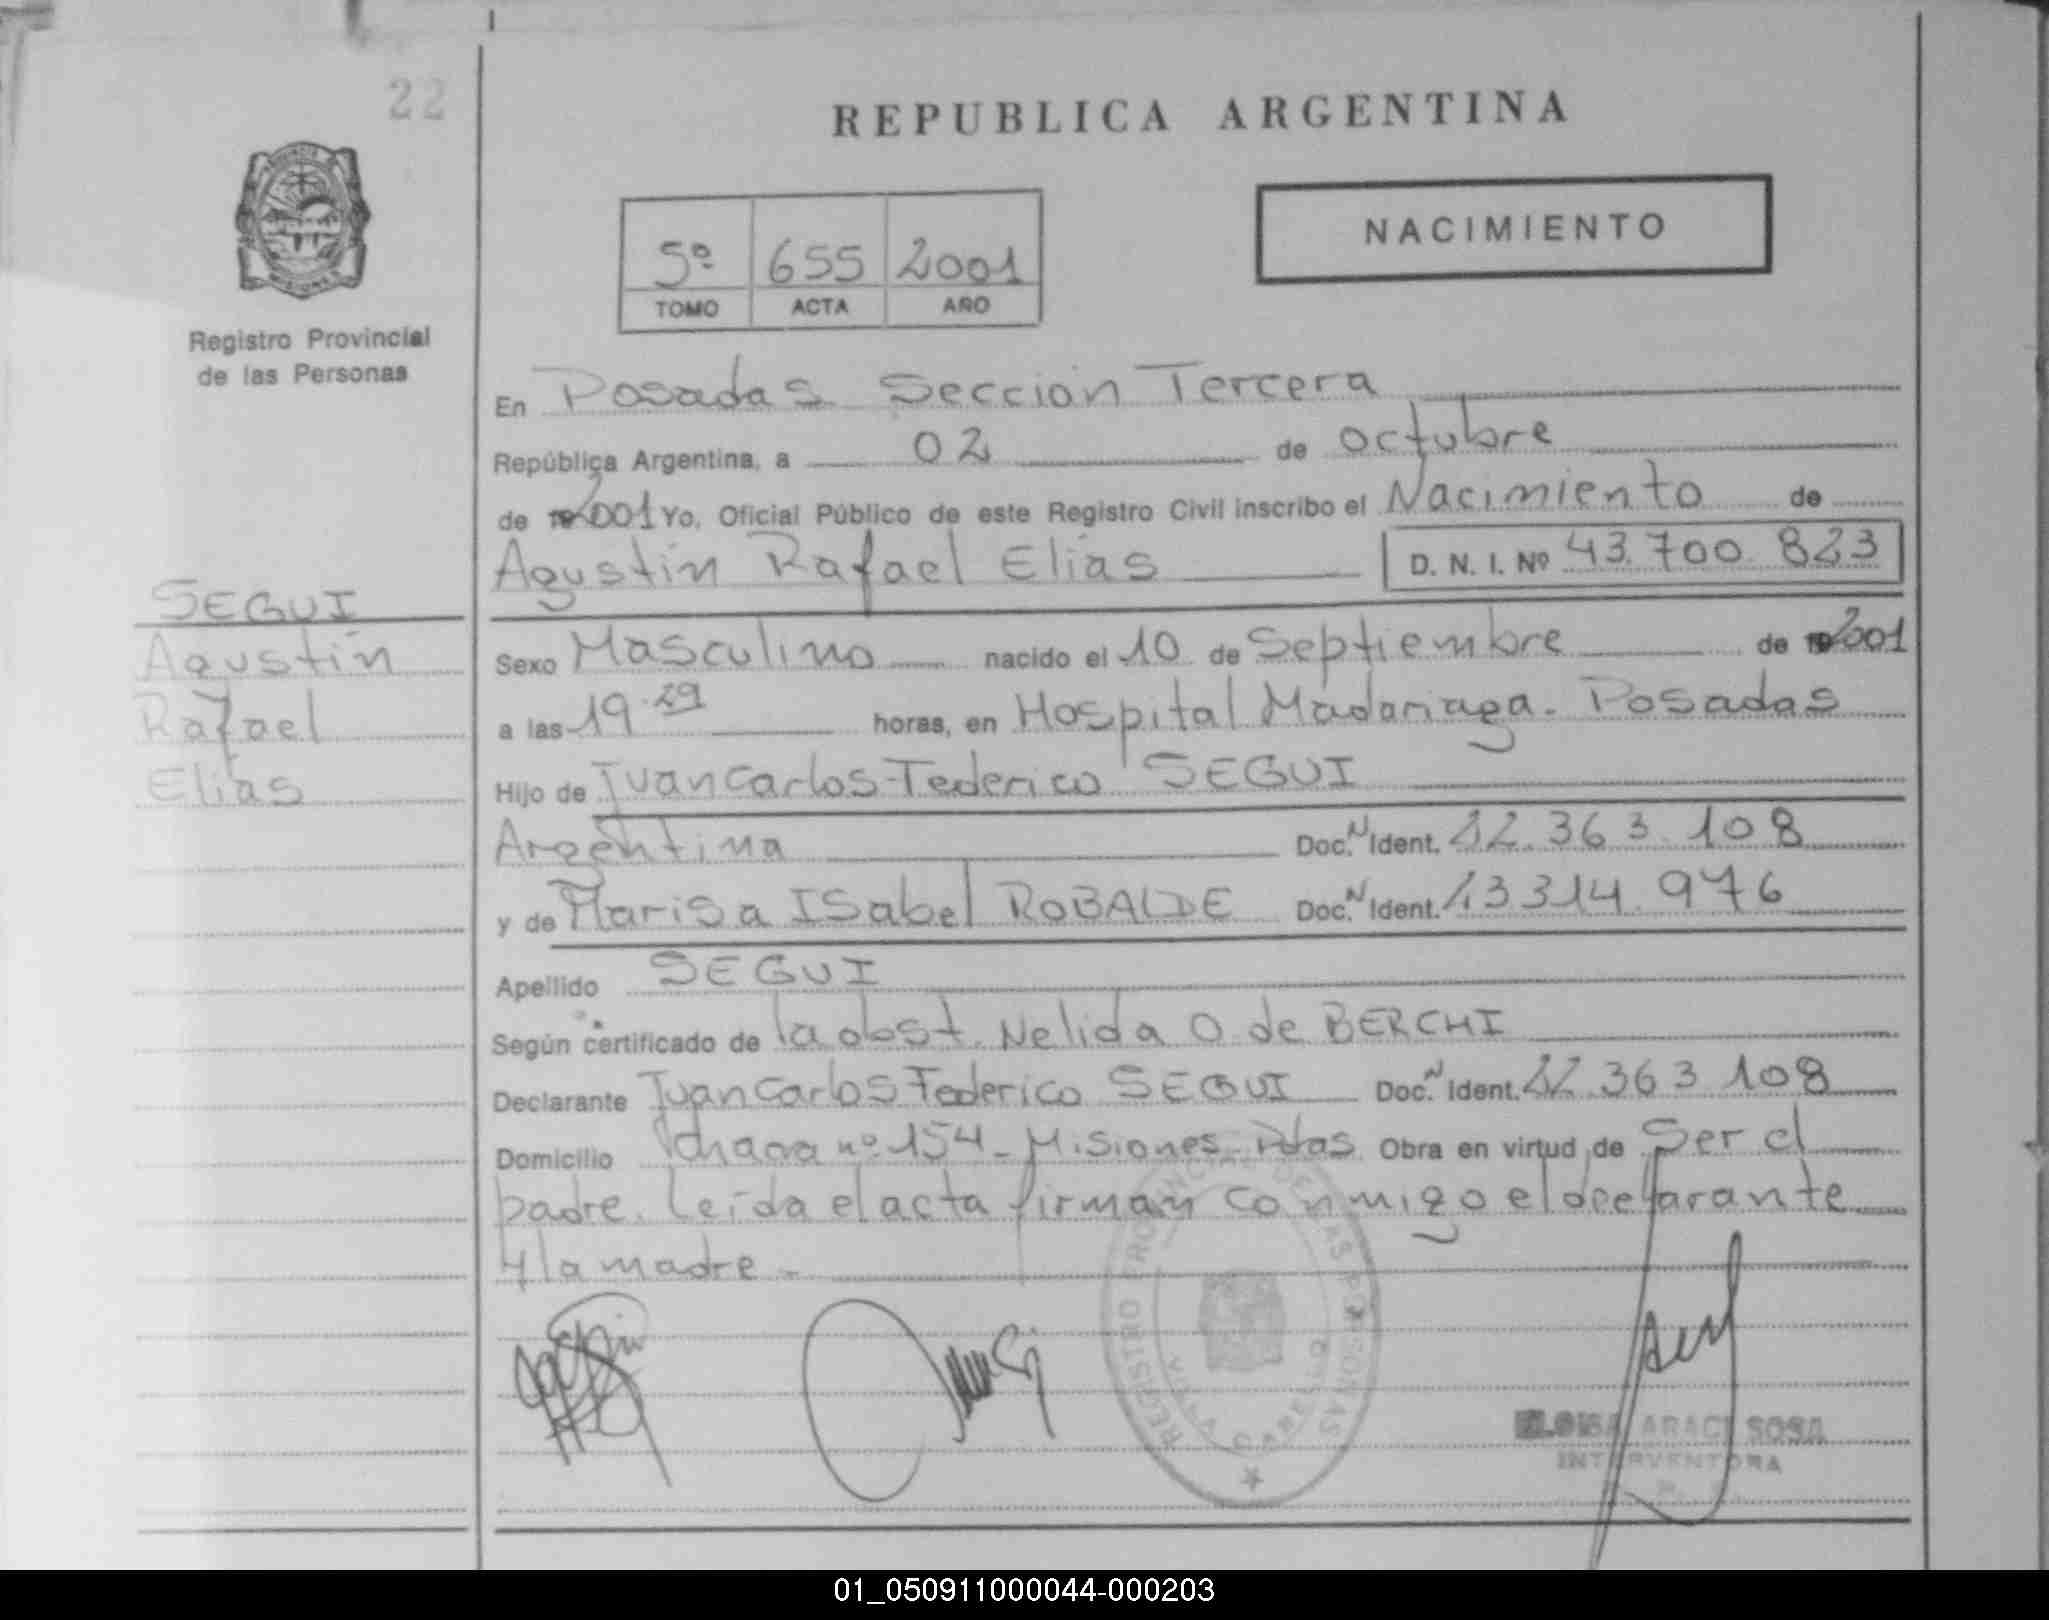 22
REPUBLICA ARGENTINA
NACIMIENTO
5º 655 2001
TOMO ACTA AÑO
Registro Provincial
de las Personas
En Posadas Sección Tercera
República Argentina, a 02 de octubre
de 2001 Yo, Oficial Público de este Registro Civil inscribo el Nacimiento de
Agustín Rafael Elías D. N. I. Nº 43.700.823
SEGUI
Agustín
Rafael
Elías
Sexo Masculino nacido el 10 de Septiembre de 2001
a las 19.29 horas, en Hospital Madariaga. Posadas
Hijo de Juan Carlos Federico SEGUI
Argentina Doc. N Ident. 12.363.108
y de Marisa ISabel ROBALDE Doc. N Ident. 13.314.976
Apellido SEGUI
Según certificado de la obst. Nelida O. de BERCHI
Declarante Juan Carlos Federico SEGUI Doc. N Ident. 12.363.108
Domicilio chacra nº 154 - Misiones - Pdas Obra en virtud de Ser el
padre. Leída el acta firman conmigo el declarante
y la madre -
REGISTRO PROVINCIAL DE LAS PERSONAS
ARACI SOSA
INTERVENTORA
01_050911000044-000203